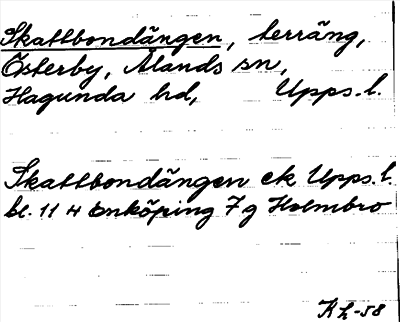 Skattbondängen, terräng,
Österby, Ålands sn,
Hagunda hd, Upps. l.
Skattbondängen ek Upps. l.
bl. 11 H Enköping 7 g Holmbro
K h-58